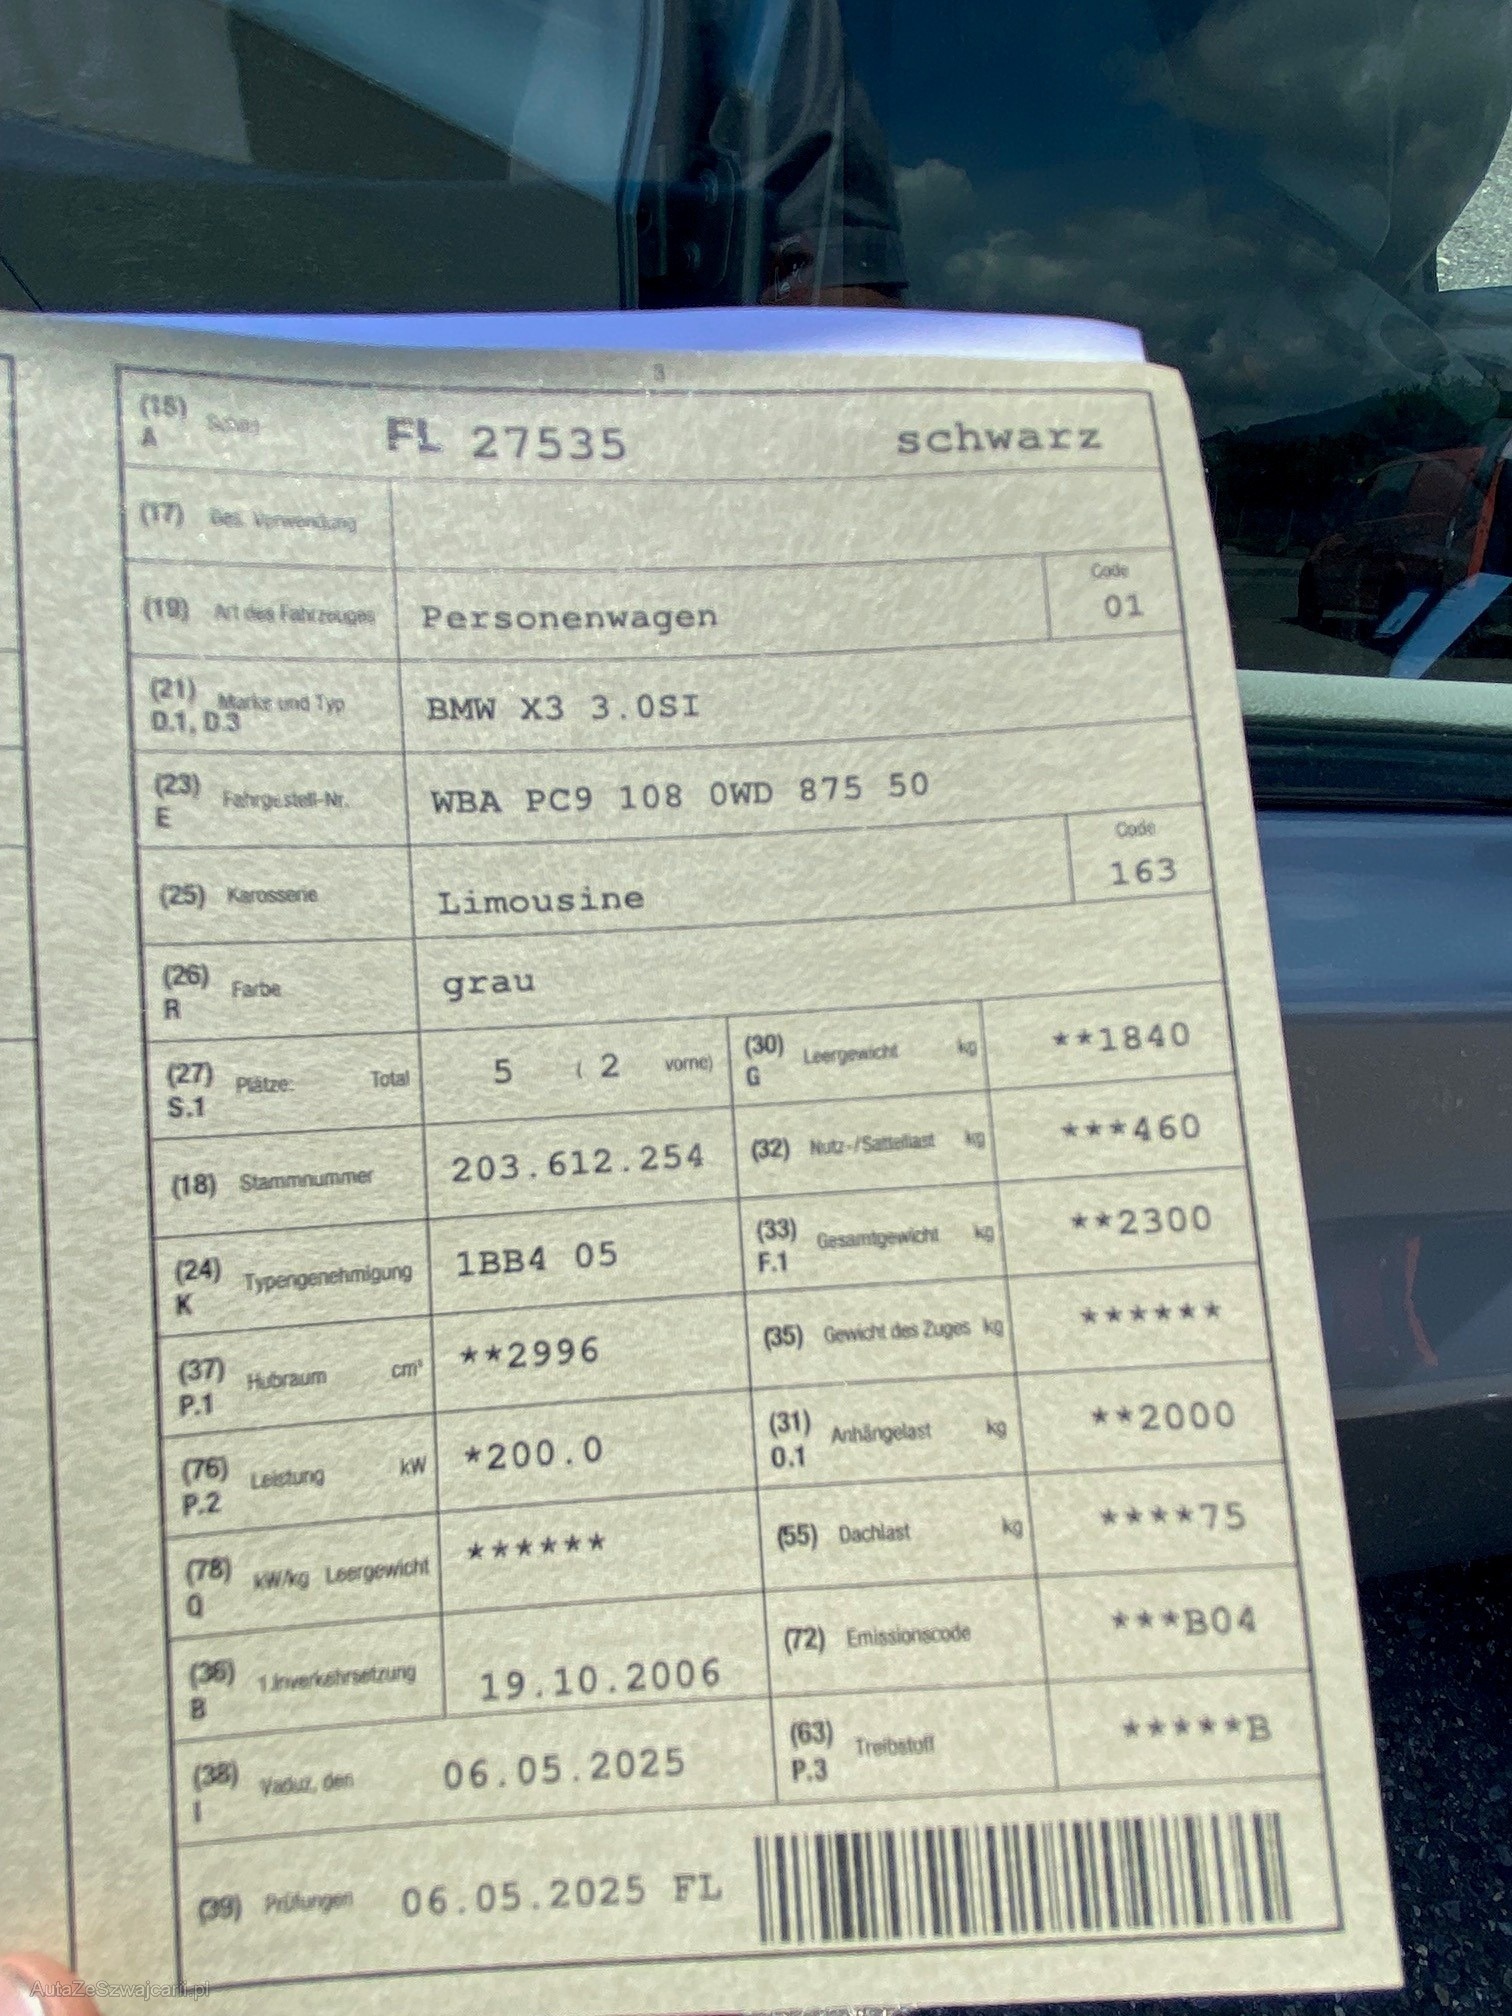 3
(15) A Schild FL 27535 schwarz
(17) Bes. Verwendung
(19) Art des Fahrzeuges Personenwagen Code 01
(21) D.1, D.3 Marke und Typ BMW X3 3.0SI
(23) E Fahrgestell-Nr. WBA PC9 108 0WD 875 50
(25) Karosserie Limousine Code 163
(26) R Farbe grau
(27) S.1 Plätze: Total 5 ( 2 vorne)
(30) G Leergewicht kg **1840
(18) Stammnummer 203.612.254
(32) Nutz-/Sattellast kg ***460
(24) K Typengenehmigung 1BB4 05
(33) F.1 Gesamtgewicht kg **2300
(37) P.1 Hubraum cm³ **2996
(35) Gewicht des Zuges kg ******
(76) P.2 Leistung kW *200.0
(31) O.1 Anhängelast kg **2000
(78) Q kW/kg Leergewicht ******
(55) Dachlast kg ****75
(36) B 1.Inverkehrsetzung 19.10.2006
(72) Emissionscode ***B04
(38) I Vaduz, den 06.05.2025
(63) P.3 Treibstoff *****B
(39) Prüfungen 06.05.2025 FL
AutaZeSzwajcarii.pl